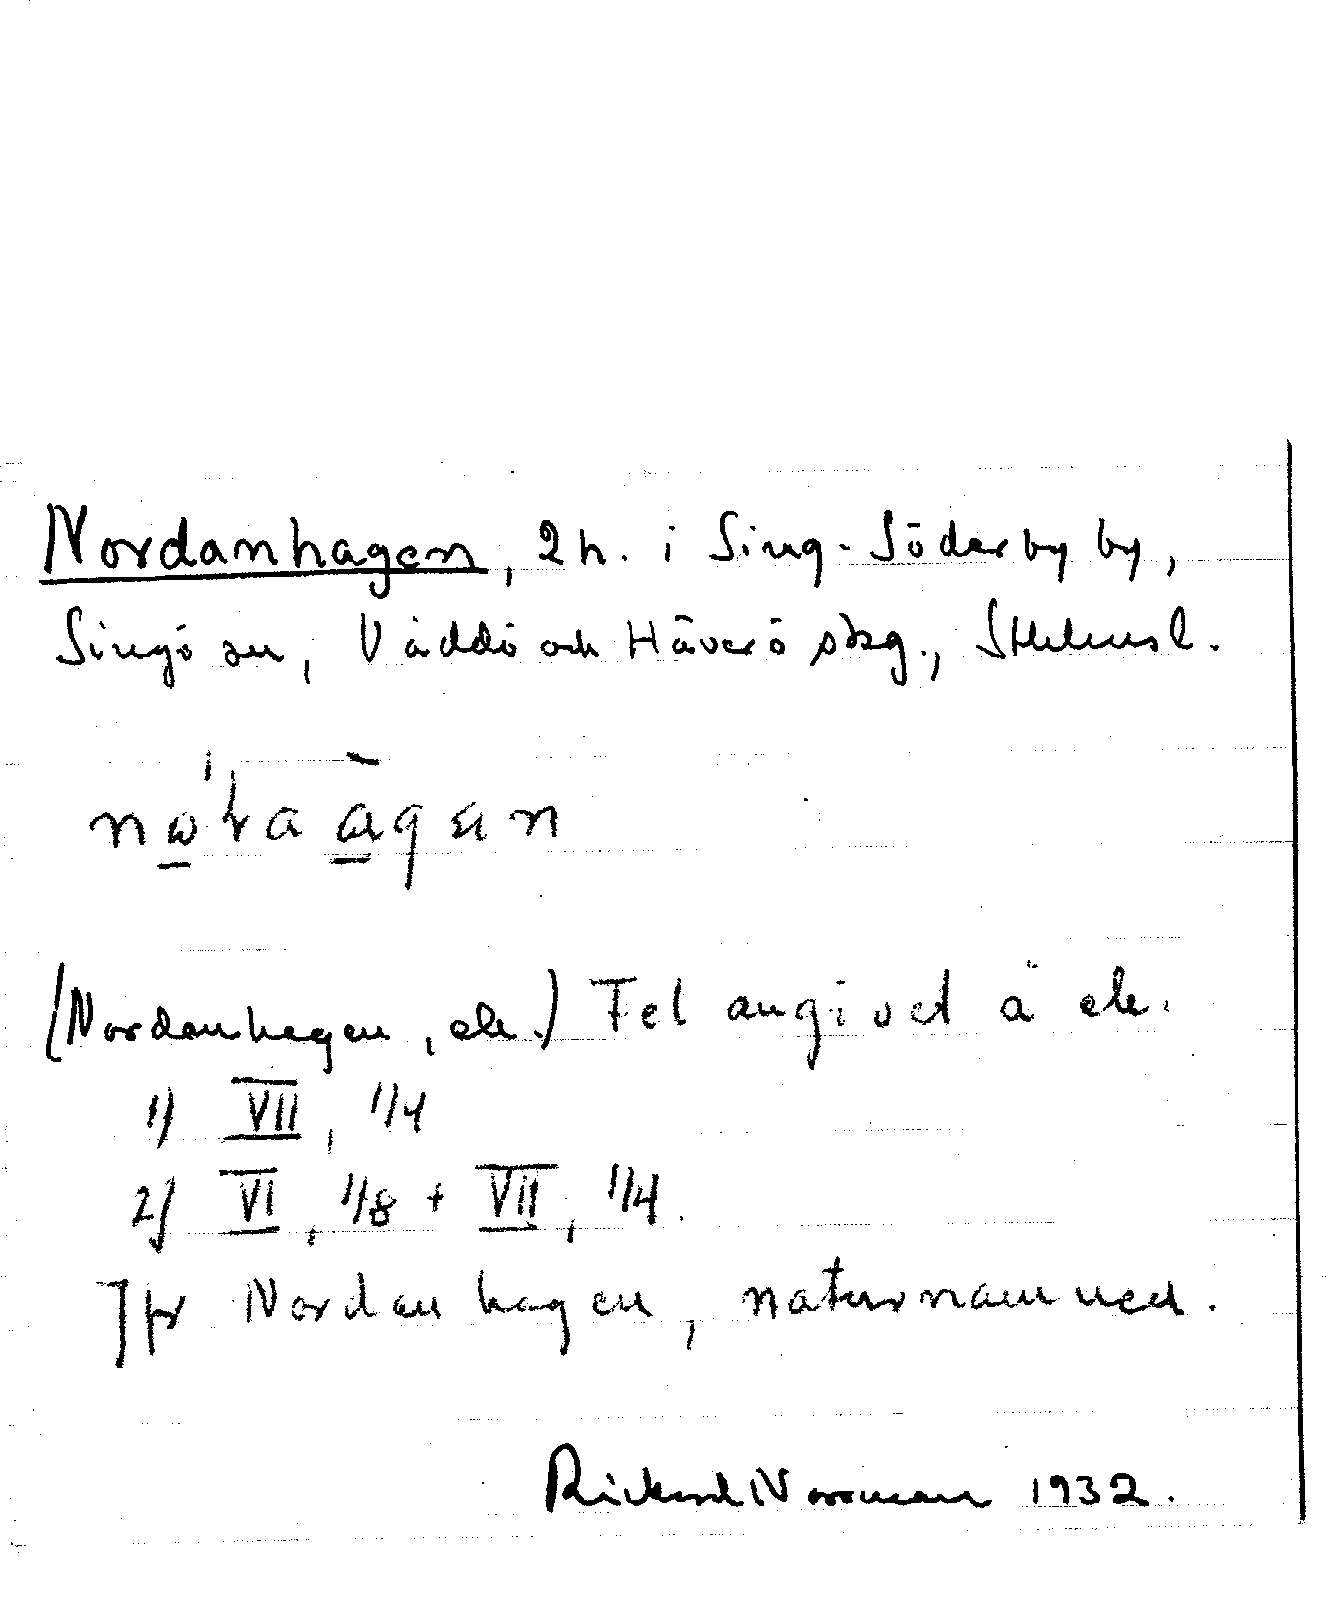 Nordanhagen, 2 h. i Sing-Söderby by,
Singö sn, Väddö och Häverö skg., Sthlmsl.
(Nordanhagen, ek.) Fel angivet å ek.
1) VII, 1/4
2) VI, 1/8 + VII, 1/4.
Jfr Nordanhagen, naturnamnen.
Rickard Norrman 1932.